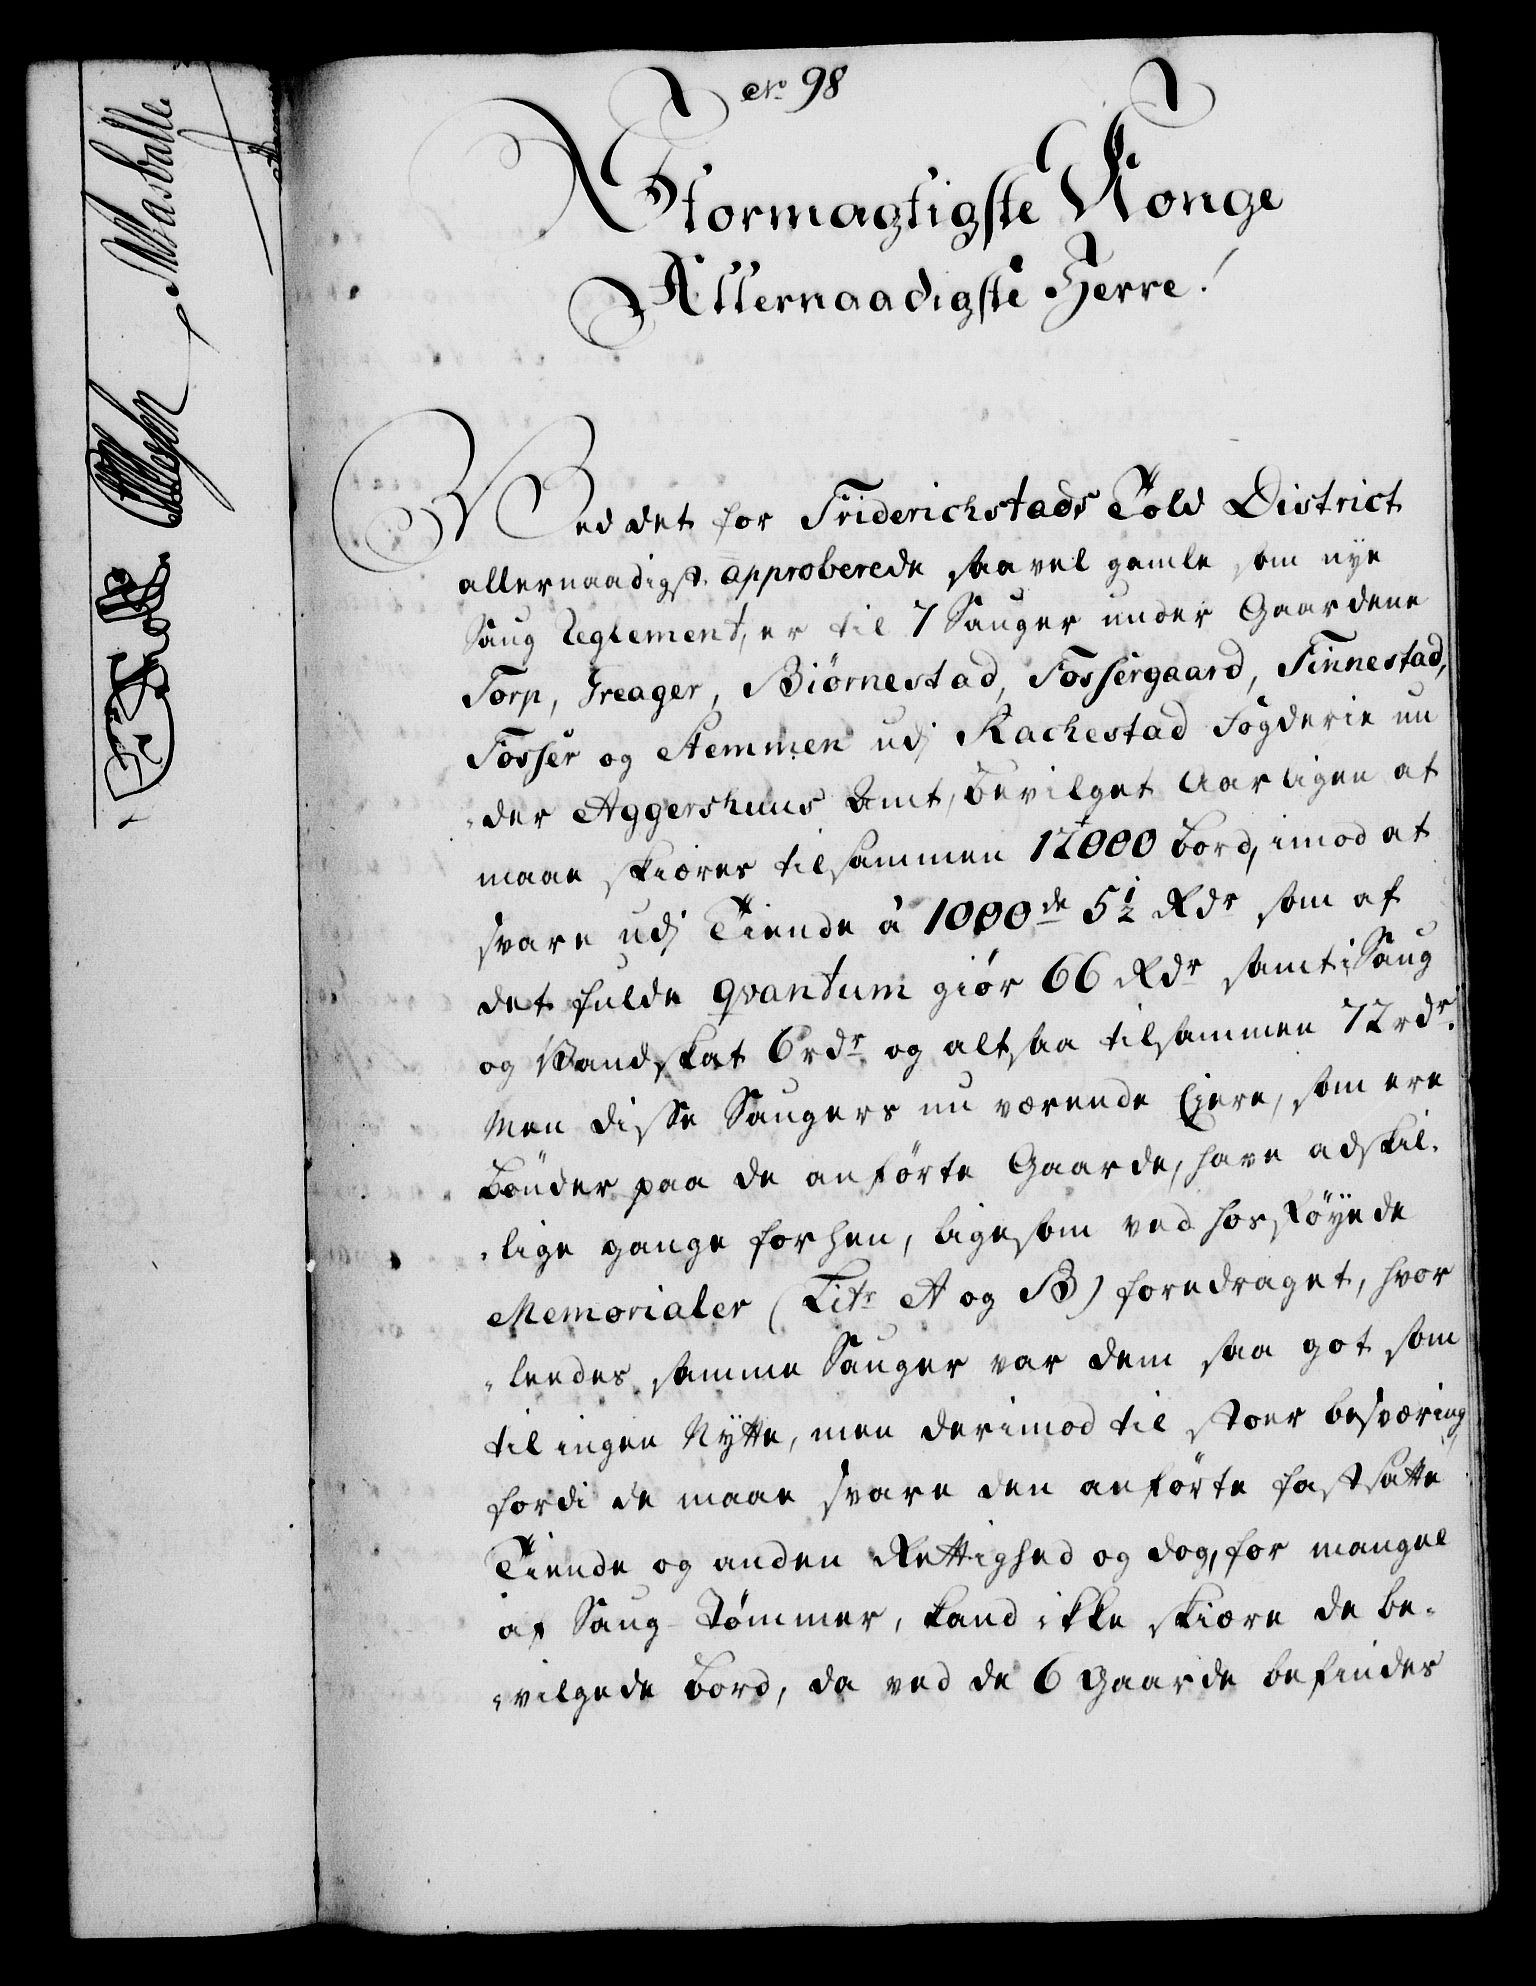 No 98
Stormagtigste Konge
Allernaadigste Herre!
Ved det for Friderichstads Told District
allernaadigst approberede saavel gamle som nye
Saug Reglement, er til 7 Sauger under Gaardene
Torp, Treager, Biørnestad, Fossergaard, Finnestad,
Fosser og Stemmen udj Rachestad Fogderie un
der Aggershuus Amt, bevilget Aarligen at
maae skiæres tilsammen 12000 Bord, imod at
svare udj Tiende à 1000de 5½ Rdr som af
det fulde qvantum giør 66 Rdr samt i Saug
og Vandskat 6 rdr og altsaa tilsammen 72 rdr.
Men disse Saugers nu værende Ejere, som ere
Bønder paa de anførte Gaarde, have adskil-
lige gange forhen, ligesom ved hosføyede
Memorialer (Litr A og B) foredraget, hvor
ledes samme Sauger var dem saa got som
til ingen Nytte, men derimod til stoer besværing
fordi de maae svare den anførte fastsatte
Tiende og anden Rettighed og dog, for mangel
af Saug-Tømmer, kand ikke skiære de be-
vilgede Bord, da ved de 6 Gaarde befindes